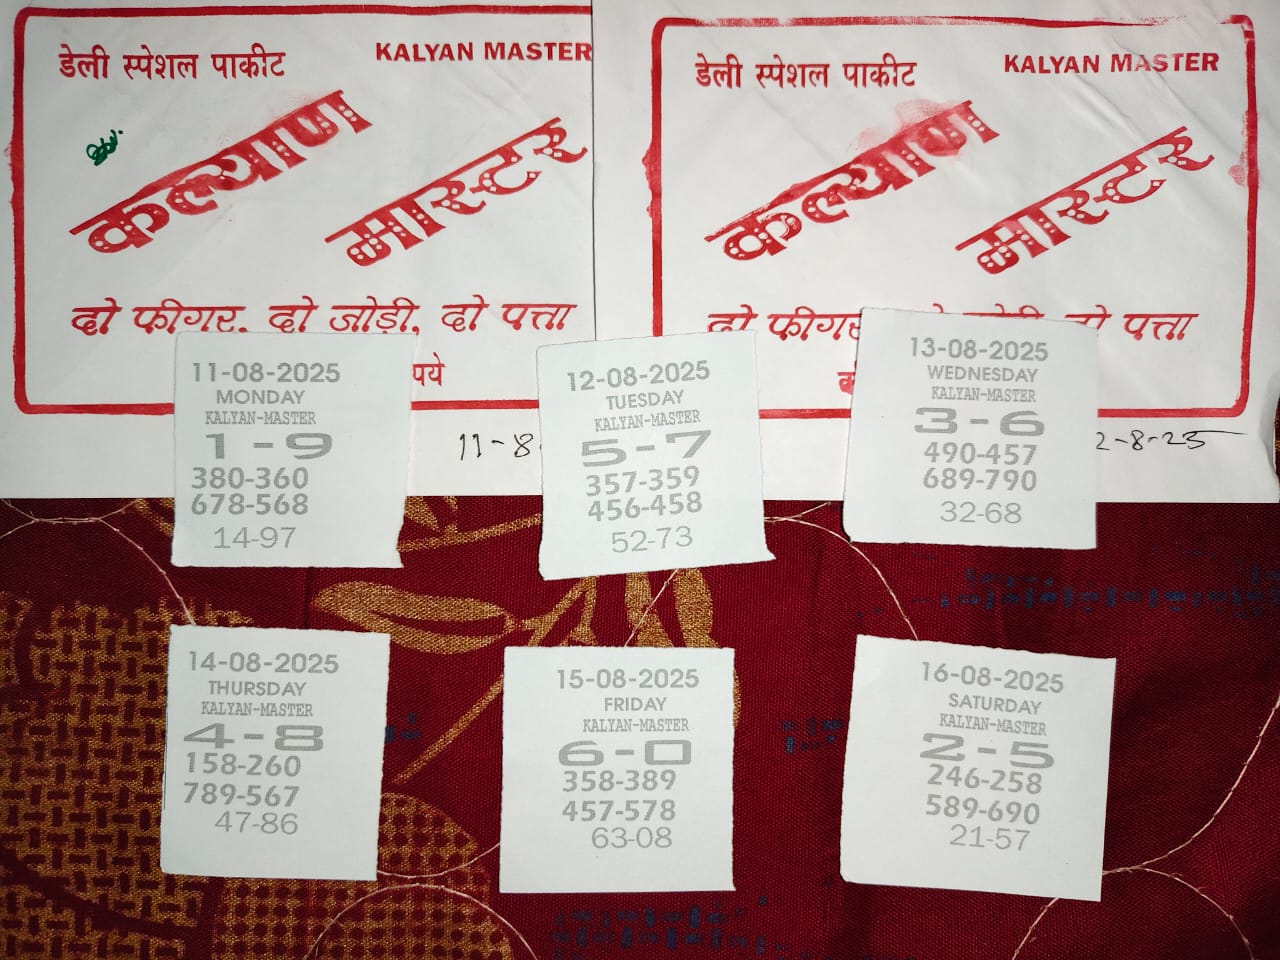 डेली स्पेशल पाकीट
KALYAN MASTER
कल्याण
मास्टर
दो फीगर, दो जोड़ी, दो पत्ता
पये
11-8
डेली स्पेशल पाकीट
KALYAN MASTER
कल्याण
मास्टर
दो फीगर
दो पत्ता
2-8-25
11-08-2025
MONDAY
KALYAN-MASTER
1-9
380-360
678-568
14-97
12-08-2025
TUESDAY
KALYAN-MASTER
5-7
357-359
456-458
52-73
13-08-2025
WEDNESDAY
KALYAN-MASTER
3-6
490-457
689-790
32-68
14-08-2025
THURSDAY
KALYAN-MASTER
4-8
158-260
789-567
47-86
15-08-2025
FRIDAY
KALYAN-MASTER
6-0
358-389
457-578
63-08
16-08-2025
SATURDAY
KALYAN-MASTER
2-5
246-258
589-690
21-57